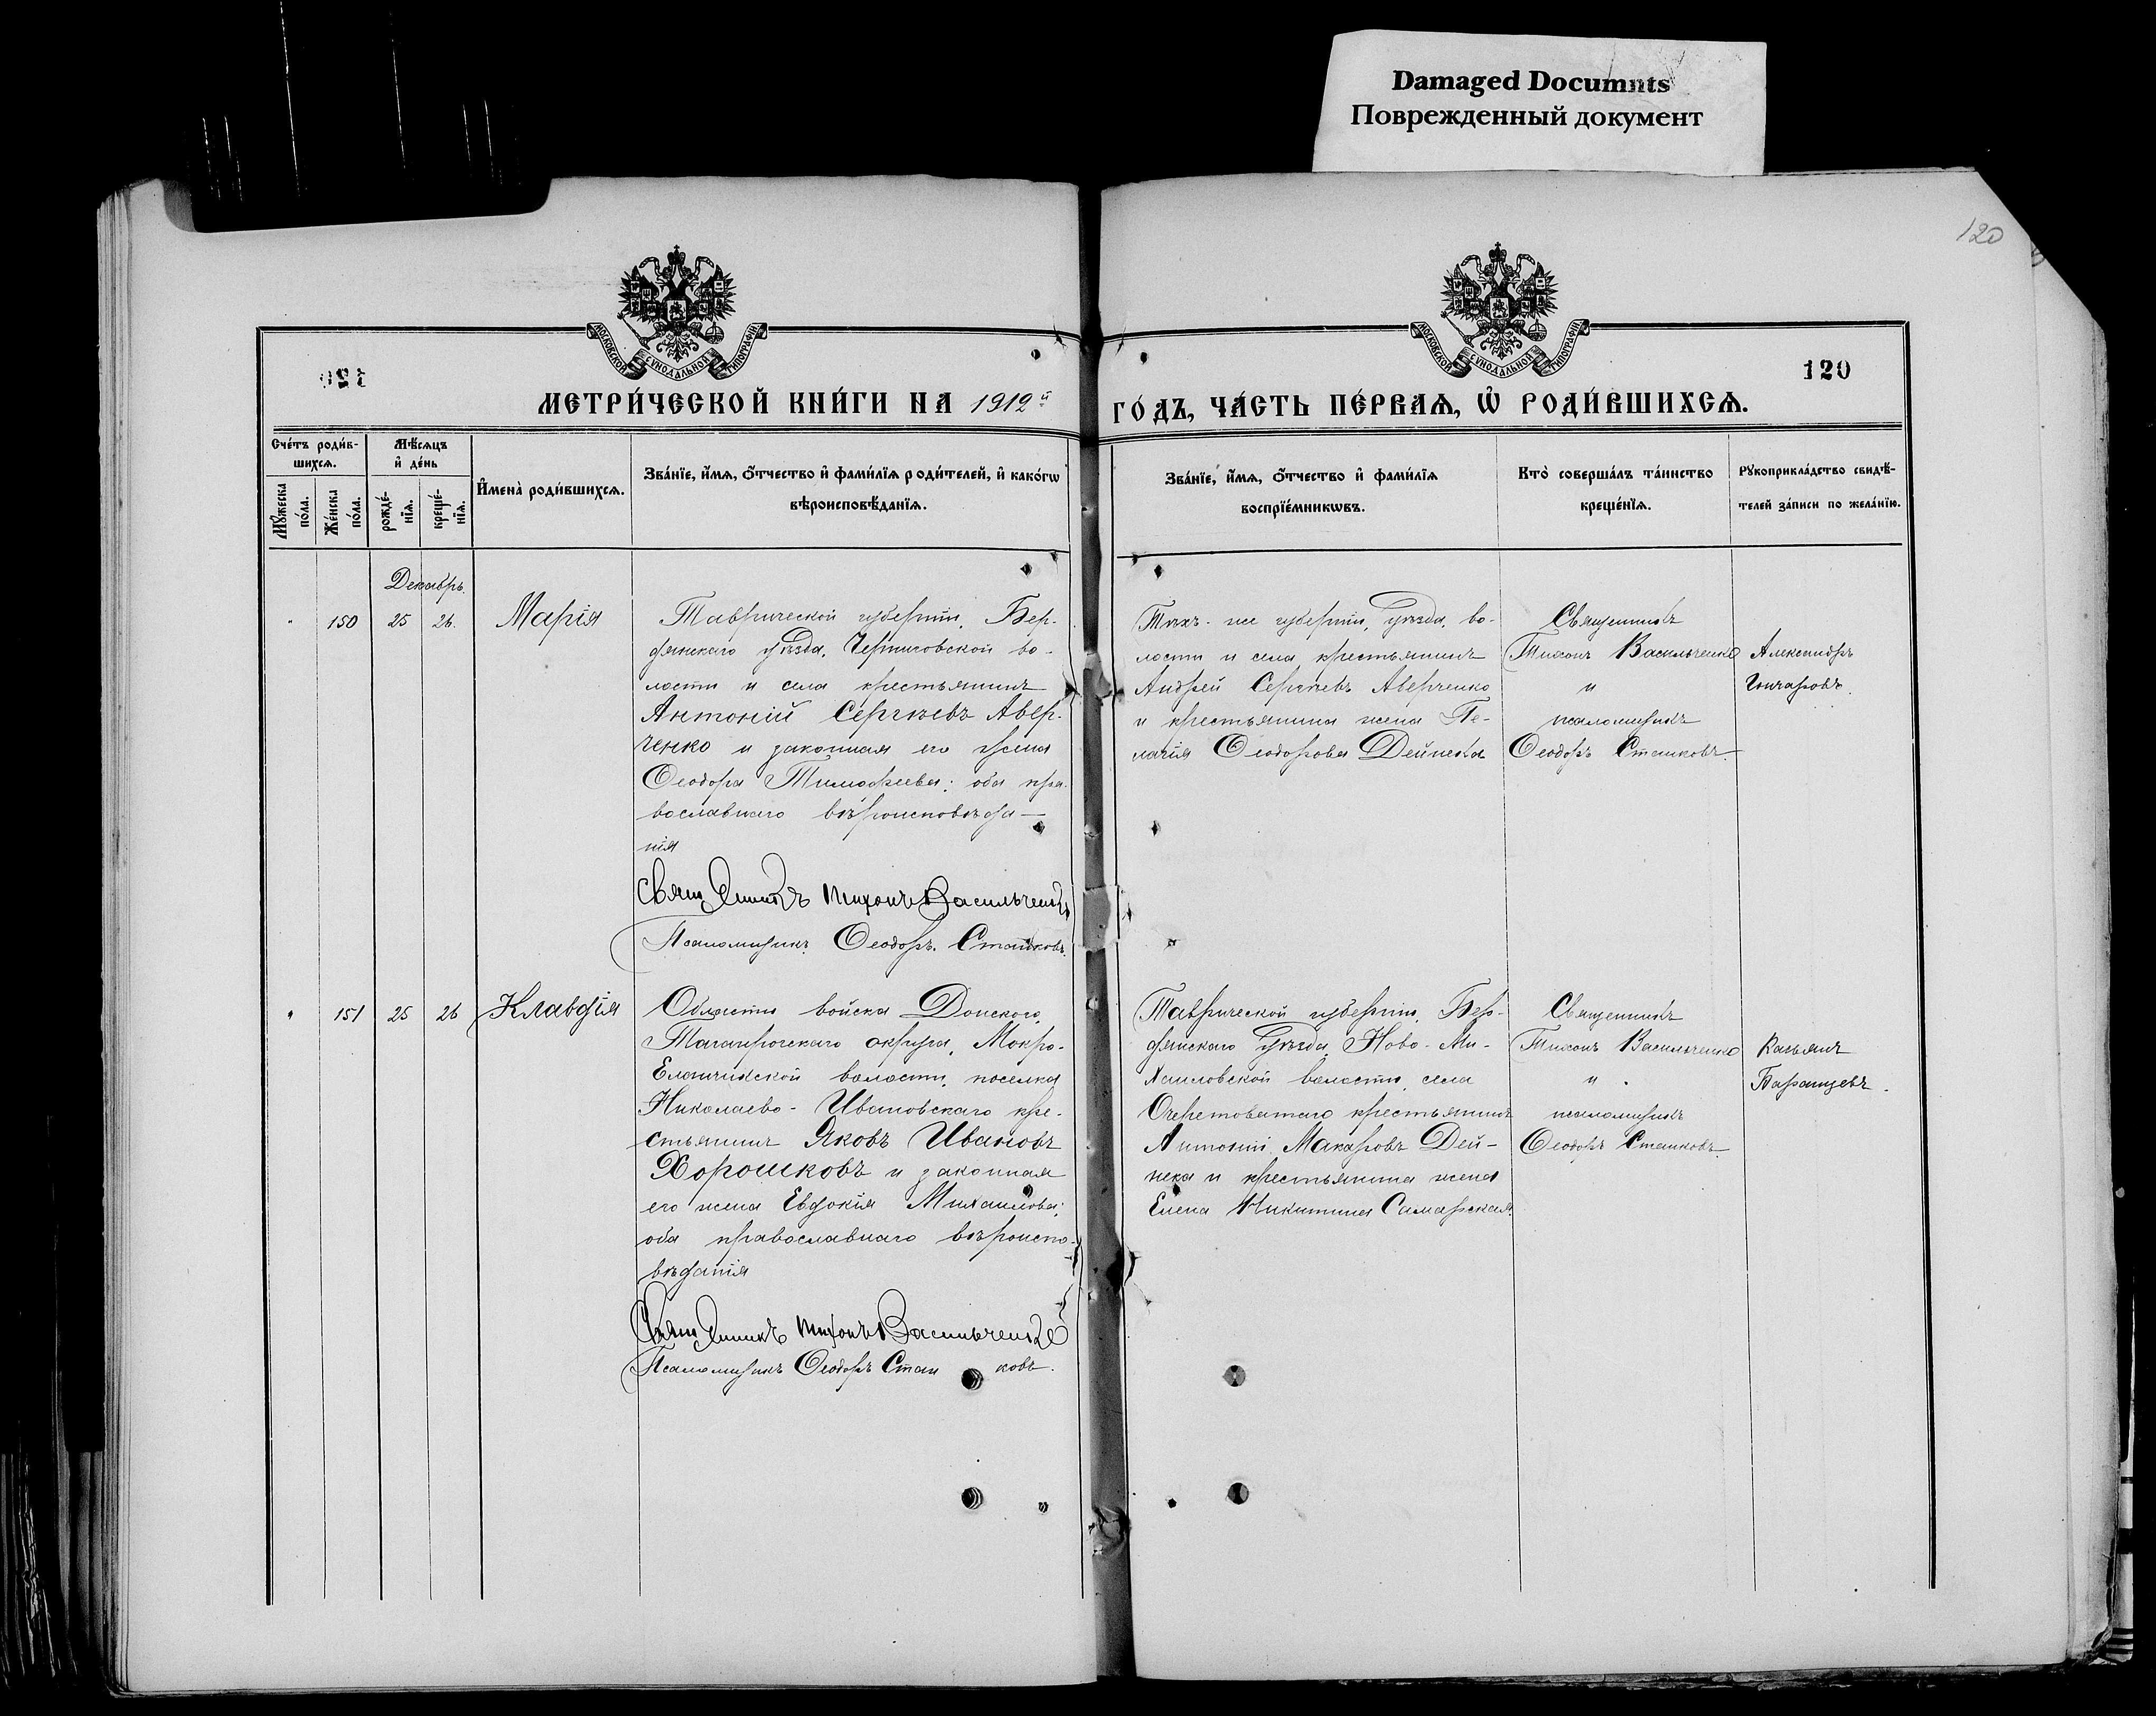 Damaged Documnts
Поврежденный документ
120
МОСКОВСКОЙ СУНОДАЛЬНОЙ ТИПОГРАФІИ
МОСКОВСКОЙ СУНОДАЛЬНОЙ ТИПОГРАФІИ
120
120
МЕТРИ́ЧЕСКОЙ КНИ́ГИ НА 1912й
ГО́ДЪ, ЧА́СТЬ ПЕ́РВАѦ, Ѡ҆ РОДИ́ВШИХСѦ.
Сче́тъ роди́в-
шихсѧ.
Мѣ́сѧцъ
и҆ де́нь
Мꙋ́жеска по́ла.
Же́нска по́ла.
рожде́-
нїѧ.
креще́-
нїѧ.
И҆мена̀ роди́вшихсѧ.
Зва́нїе, и҆́мѧ, ѻ҆́тчество и҆ фами́лїѧ роди́телей, и҆ како́гѡ
вѣроисповѣ́данїѧ.
Зва́нїе, и҆́мѧ, ѻ҆́тчество и҆ фами́лїѧ
воспрїе́мникѡвъ.
Кто̀ соверша́лъ та́инство
креще́нїѧ.
Рꙋкоприкла́дство свидѣ́-
телей за́писи по жела́нїю.
Декабрь.
" 150 25 26. Марія
Таврической губерніи, Бер-
дянскаго уѣзда, Черниговской во-
лости и села крестьянинъ
Антоній Сергѣевъ Авер-
ченко и законная его жена
Ѳеодора Тимоѳеева; оба пра-
вославнаго вѣроисповѣда-
нія
Священникъ Тихонъ Васильченко
Псаломщикъ Ѳеодоръ Станковъ.
Тѣхъ-же губерніи, уѣзда, во-
лости и села крестьянинъ
Андрей Сергѣевъ Аверченко
и крестьянина жена Пе-
лагія Ѳеодорова Дейнека
Священникъ
Тихонъ Васильченко
и
псаломщикъ
Ѳеодоръ Станковъ.
Александръ
Гончаровъ.
" 151 25 26 Клавдія
Области войска Донского,
Таганрогскаго округа, Мокро-
Еланчикской волости, поселка
Николаево-Ивановскаго кре-
стьянинъ Яковъ Ивановъ
Хорошковъ и законная
его жена Евдокія Михаилова;
оба православнаго вѣроиспо-
вѣданія
Священникъ Тихонъ Васильченко
Псаломщикъ Ѳеодоръ Стан ковъ.
Таврической губерніи, Бер-
дянскаго уѣзда, Ново-Ми-
хаиловской волости, села
Очеретоватаго крестьянинъ
Антоній Макаровъ Дей-
нека и крестьянина жена
Елена Никитина Самарская.
Священникъ
Тихонъ Васильченко
и
псаломщикъ
Ѳеодоръ Станковъ.
Касьянъ